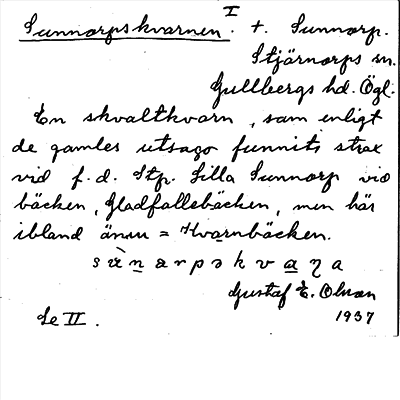 Sunnorpskvarnen. I t. Sunnorp.
Stjärnorps sn.
Gullbergs hd. Ögl.
En skvaltkvarn, som enligt
de gamles utsago funnits strax
vid f.d. Stp. Lilla Sunnorp vid
bäcken, Gladfallebäcken, men här
ibland ännu = Kvarnbäcken.
sὰnɑrpskvaɳa
Gustaf E. Olsson
1937
Se II.